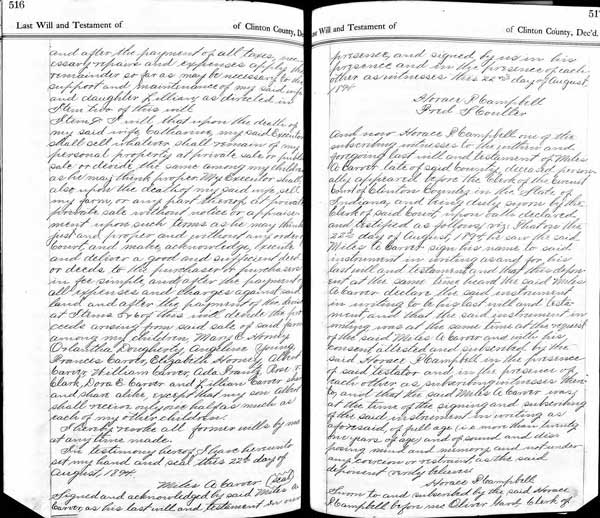 516
Last Will and Testament of
of Clinton County, De
and after the payment of all taxes, nec-
essary repairs and expenses apply the
remainder so far as may be necessary to the
support and maintenance of my said wife
and daughter Lillian as directed in
Item two of this will.
Item I will, that upon the death of
my said wife Catharine, my said Executor
shall sell whatever shall remain of my
personal property at private sale or public
sale or divide the same among my children
as he may think proper. My Executor shall
also upon the death of my said wife, sell
my farm, or any part thereof at private
private sale without notice or appraise-
ment upon such terms as he may think
just and proper and without any order
Court, and make, acknowledge, execute
and deliver a good and sufficient deed
or deeds to the purchaser or purchasers
in fee simple, and after the payment
all expenses and charges against said
land and after the payment of the
at Items 5 & 6 of this will divide the pro-
ceeds arising from said sale of said farm
among my children Mary E. Hornby
Dougherty, Young,
Frances Carver, Elizabeth Albert
Carver, William Carver, Ada Rose
Clark, Dora E Carver and Lillian Carver share
and share alike, except that my son Albert
shall receive only one half as much as
each of my other children.
I hereby revoke all former wills by me
at any time made.
In testimony hereof I have hereunto
set my hand and seal this 22nd day of
August, 1894.
Miles A Carver (Seal)
Signed and acknowledged by said Miles A
Carver, as his last will and testament in our
51
Last Will and Testament of
of Clinton County, Dec'd.
presence, and signed by us in his
presence and in the presence of each
other as witnesses this 22nd day of August,
1894
Horace P Campbell
Fred S Coulter
And now Horace P Campbell one of the
subscribing witnesses to the within and
foregoing last will and testament of Miles
A Carver late of said County, deceased person-
ally appeared before the Clerk of the Circuit
Court of Clinton County in the State of
Indiana, and being duly sworn by the
Clerk of said Court, upon oath declared
and testified as follows viz: That on the
22nd day of August, he saw the said
Miles A Carver sign his name to said
instrument in writing as and for his
last will and testament and that this depon-
ent at the same time heard the said Miles
A Carver declare the said instrument
in writing to be his last will and testa-
ment, and that the said instrument in
writing was at the same time at the request
of the said Miles A Carver and with his
consent attested and subscribed by the
said Horace P Campbell in the presence
of said testator and in the presence of
each other as subscribing witnesses there-
to, and that the said Miles A Carver was
at the time of the signing and subscribing
of the said instrument in writing as
aforesaid, of full age (i.e. more than twenty
one years of age) and of sound and dis-
posing mind and memory and not under
any coercion or restraint as the said
deponent verily believes.
Horace P Campbell
Sworn to and subscribed by the said Horace
P Campbell before me Oliver Hard Clerk of